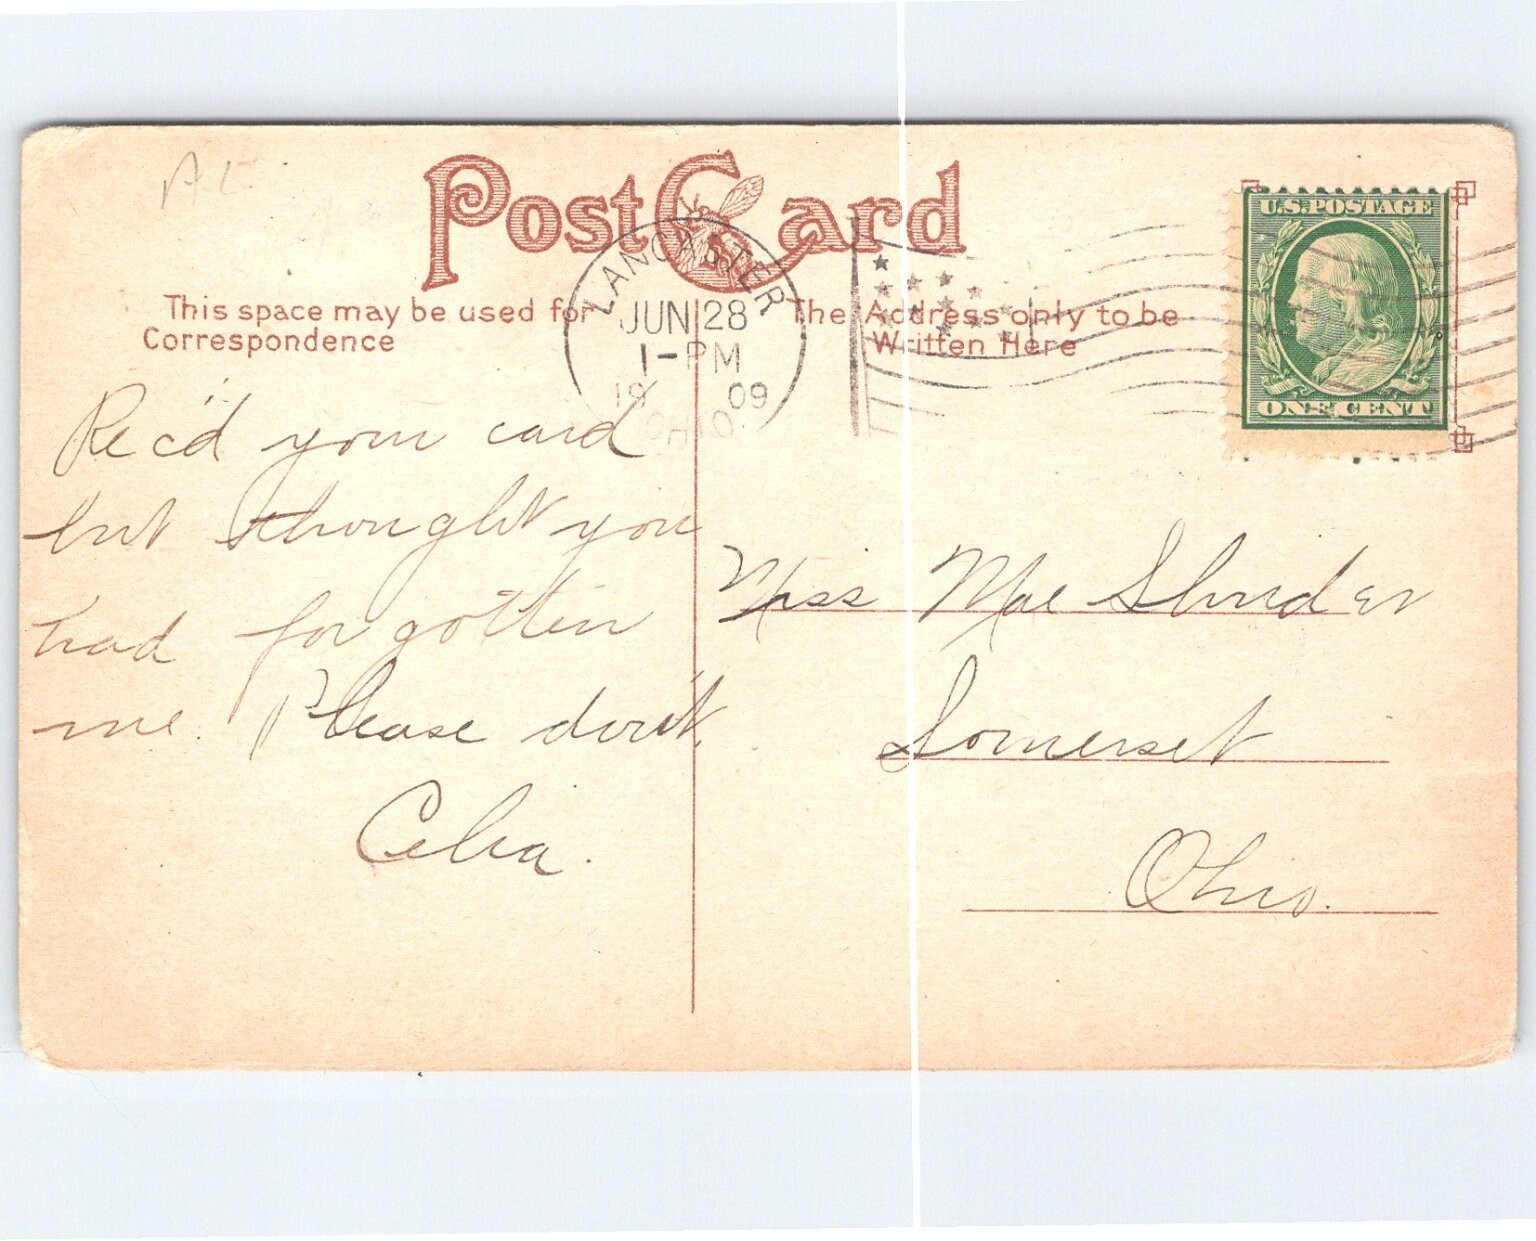 A E
Post Card
This space may be used for
Correspondence
The Address only to be
Written Here
LANCASTER
JUN 28
1-PM
1909
OHIO.
U.S. POSTAGE
ONE CENT
Rec'd your card
but thought you
had forgotten
me. Please don't.
Celia.
Miss Mae Shrider
Somerset
Ohio.